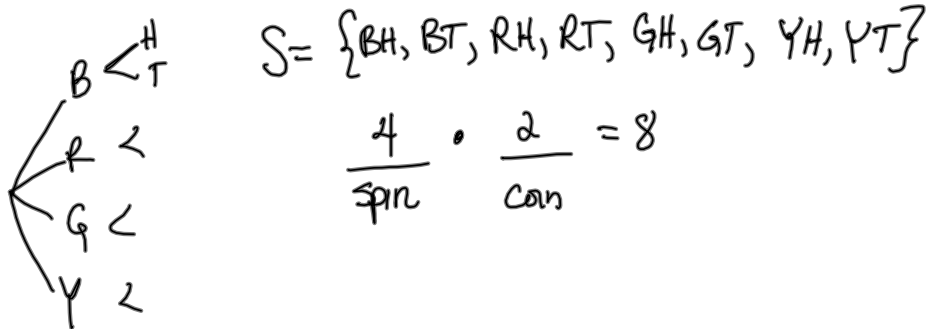 H
T
B
R
G
Y
S= {BH, BT, RH, RT, GH, GT, YH, YT}
4 • 2 = 8
spin coin